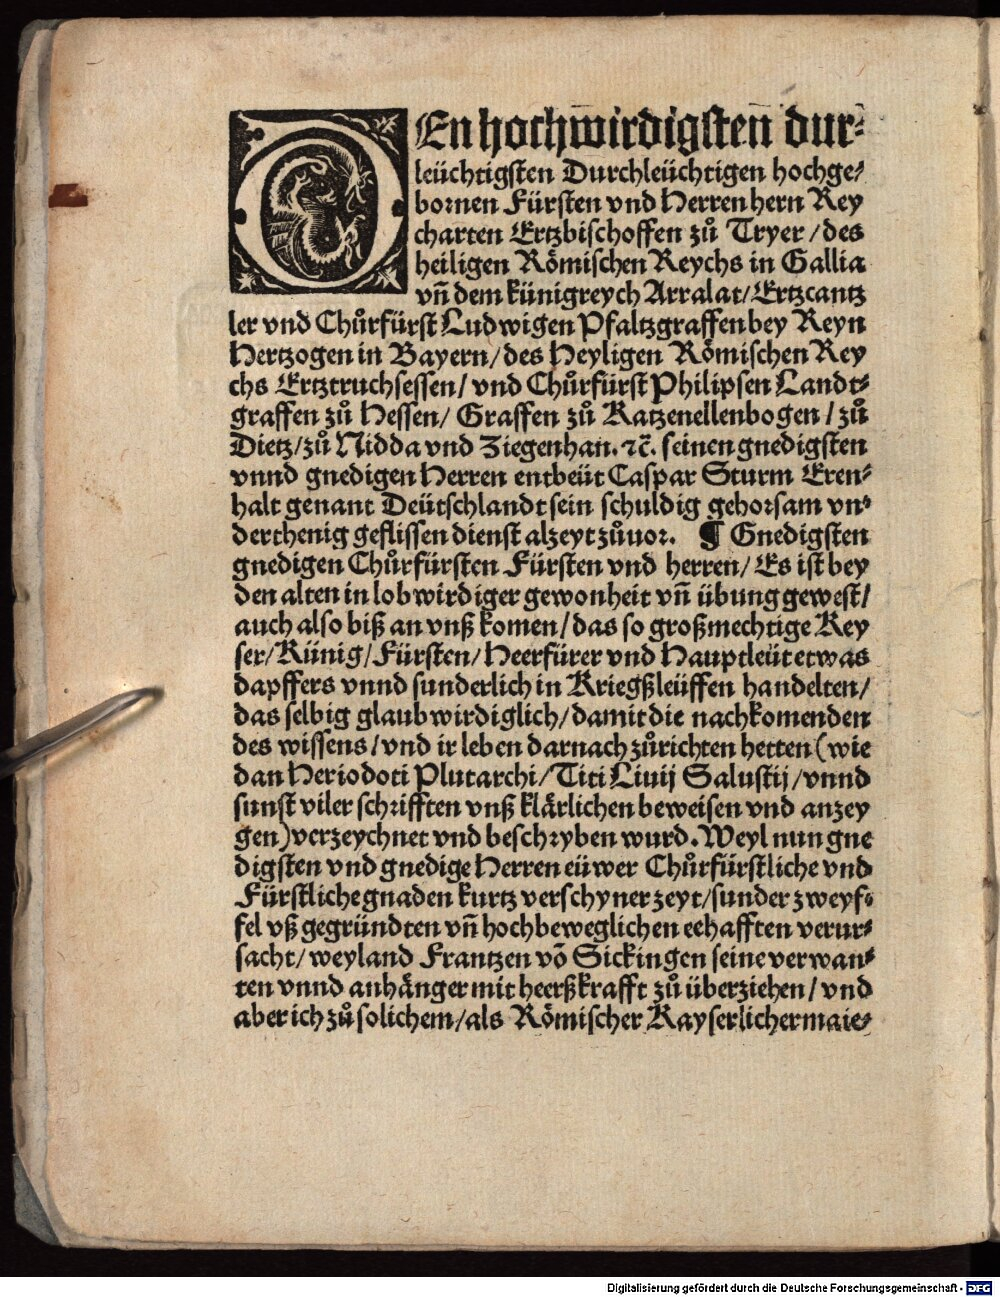 DEn hochwirdigsten dur⸗
leüchtigsten Durchleüchtigen hochge⸗
bornen Fürsten vnd Herren hern Rey
charten Ertzbischoffen zů Tryer / des
heiligen Römischen Reychs in Gallia
vñ dem künigreych Arralat / Ertzcantz
ler vnd Chůrfürst Ludwigen Pfaltzgraffen bey Reyn
Hertzogen in Bayern / des Heyligen Römischen Rey
chs Ertztruchsessen / vnd Chůrfürst Philipsen Landt⸗
graffen zů Hessen / Graffen zů Katzenellenbogen / zů
Dietz / zů Nidda vnd Ziegenhan. ⁊c̃. seinen gnedigsten
vnnd gnedigen Herren entbeüt Caspar Sturm Eren⸗
halt genant Deütschlandt sein schuldig gehorsam vn⸗
derthenig geflissen dienst alzeyt zůuor. ¶ Gnedigsten
gnedigen Chůrfürsten Fürsten vnd herren / Es ist bey
den alten in lobwirdiger gewonheit vñ übung gewest /
auch also biß an vnß komen / das so großmechtige Key
ser / Künig / Fürsten / Heerfürer vnd Hauptleüt etwas
dapffers vnnd sunderlich in Kriegßleüffen handelten /
das selbig glaubwirdiglich / damit die nachkomenden
des wissens / vnd ir leben darnach zůrichten hetten (wie
dan Heriodoti Plutarchi / Titi Liuij Salustij / vnnd
sunst viler schrifften vnß klärlichen beweisen vnd anzey
gen) verzeychnet vnd beschryben wurd. Weyl nun gne
digsten vnd gnedige Herren eüwer Chůrfürstliche vnd
Fürstliche gnaden kurtz verschyner zeyt / sunder zweyf⸗
fel vß gegründten vñ hochbeweglichen eehafften verur⸗
sacht / weyland Frantzen võ Sickingen seine verwan⸗
ten vnnd anhänger mit heerßkrafft zů überziehen / vnd
aber ich zů solichem / als Römischer Kayserlicher maie⸗
Digitalisierung gefördert durch die Deutsche Forschungsgemeinschaft - DFG